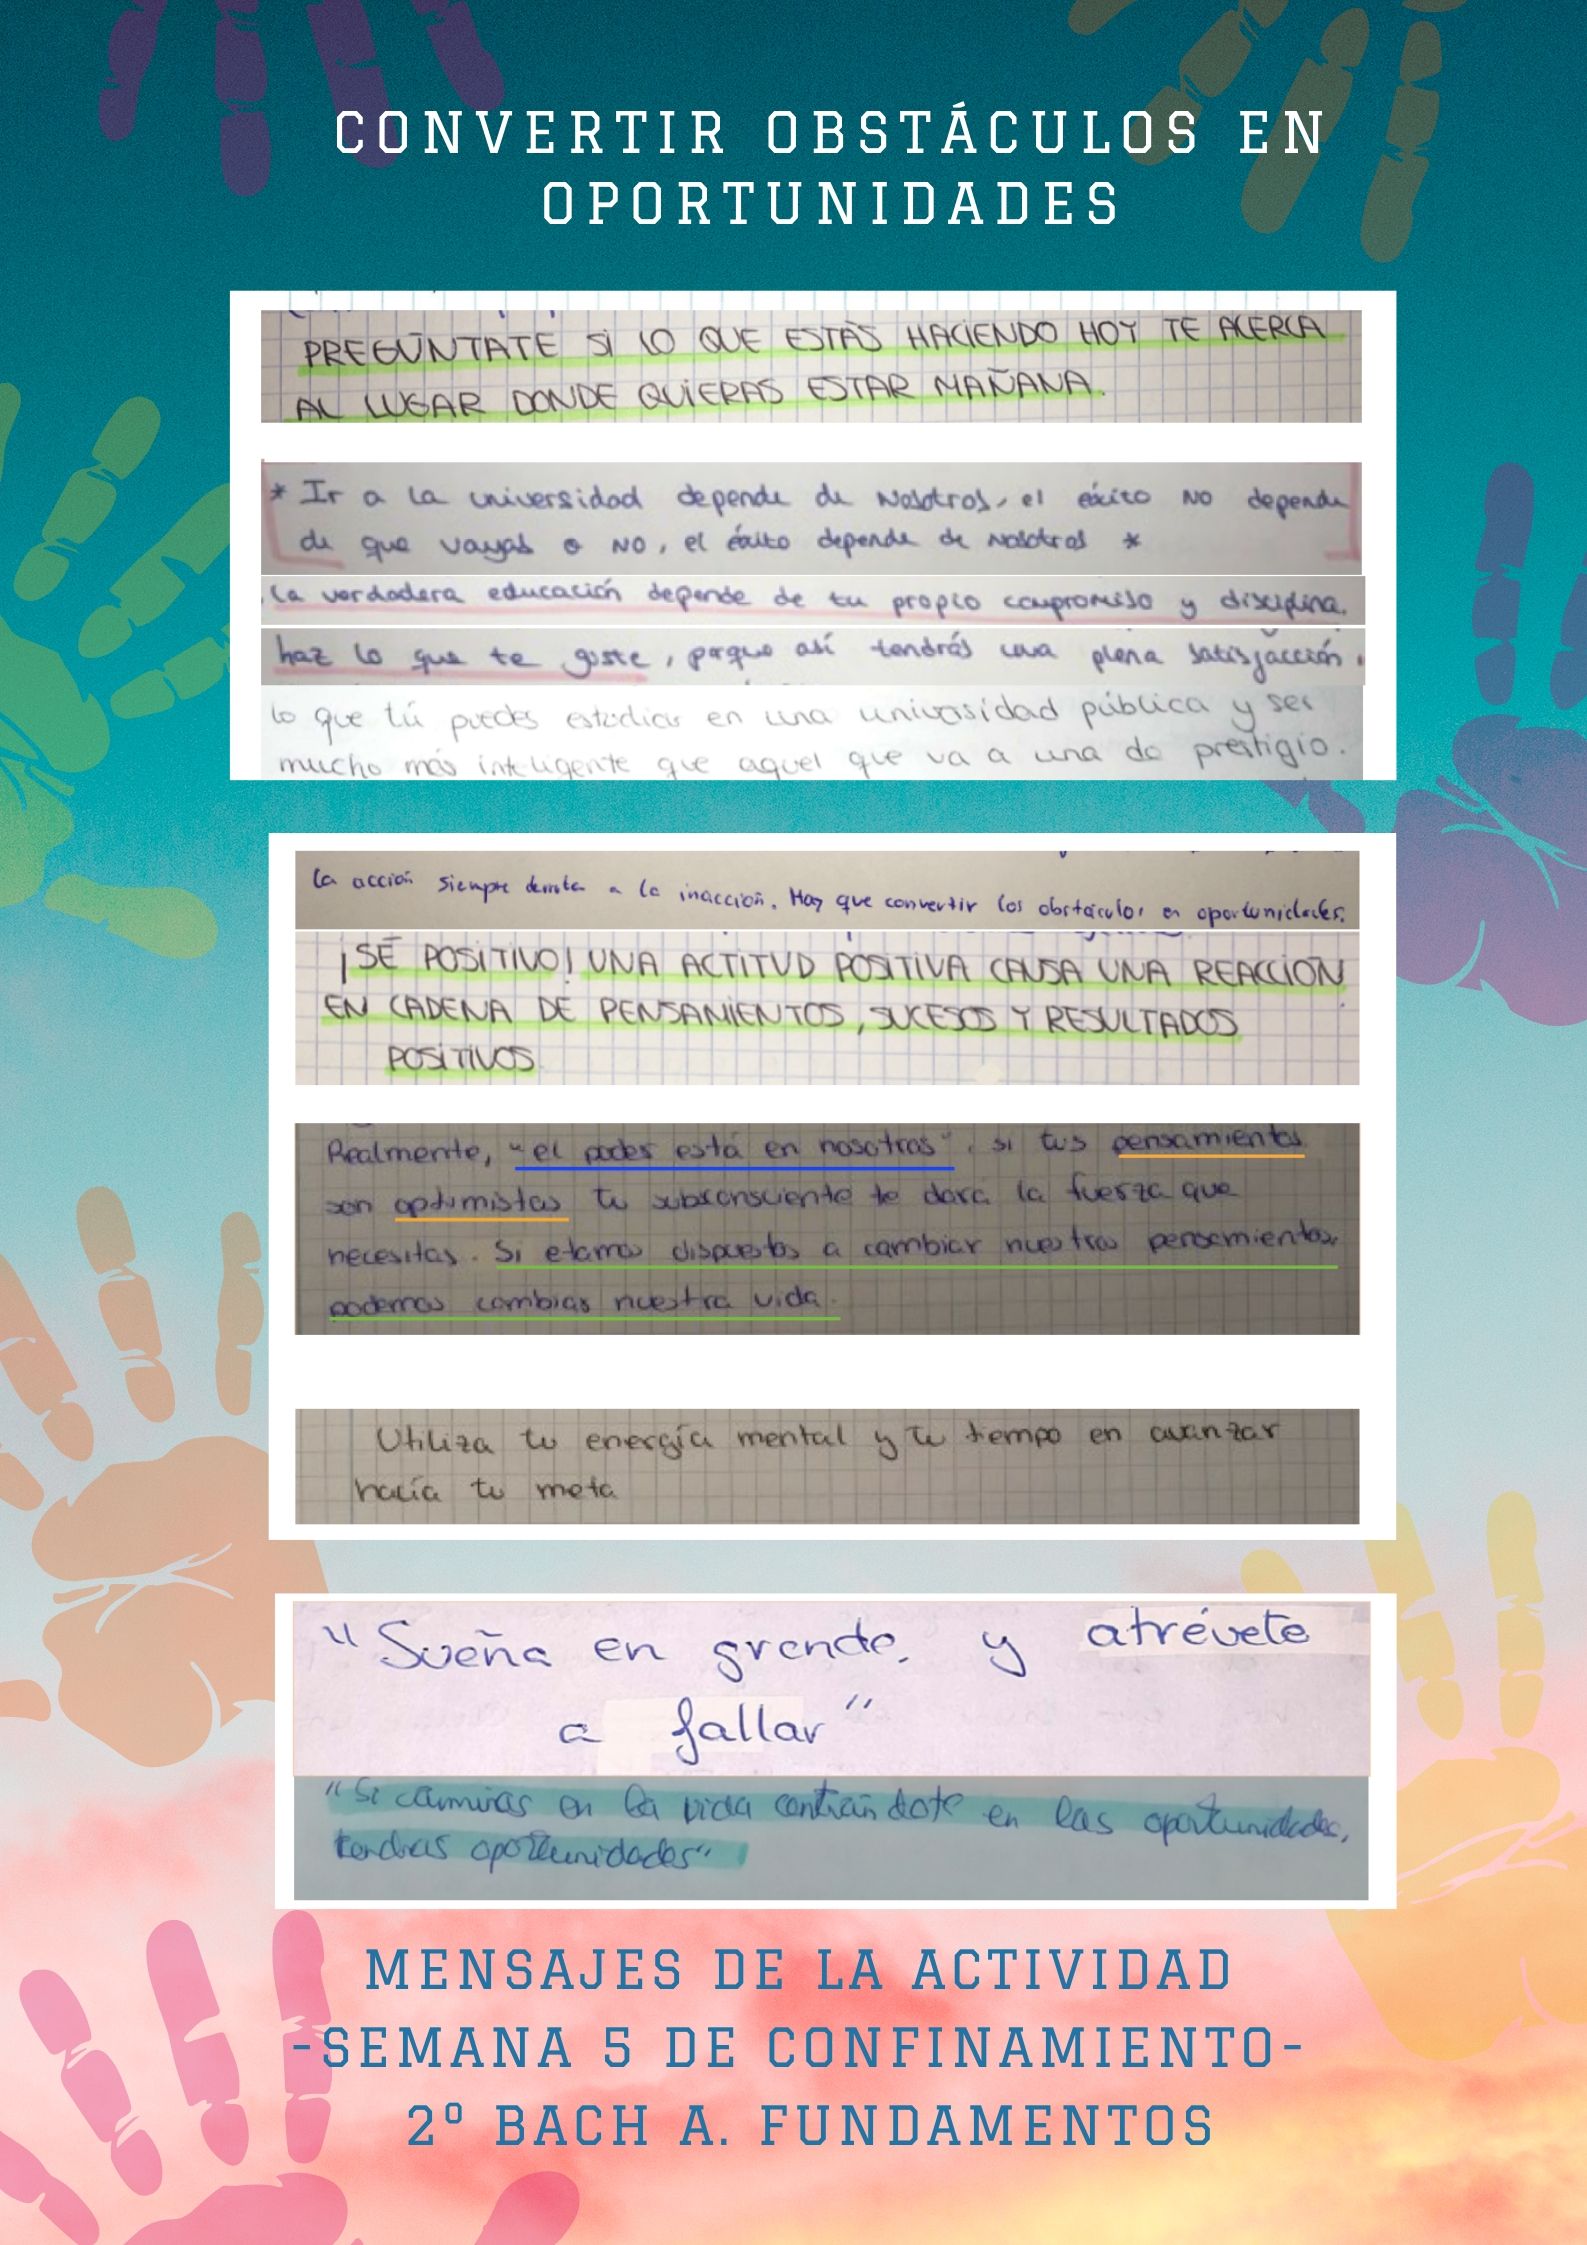 CONVERTIR OBSTÁCULOS EN
OPORTUNIDADES
PREGÚNTATE SI LO QUE ESTÁS HACIENDO HOY TE ACERCA
AL LUGAR DONDE QUIERAS ESTAR MAÑANA.
* Ir a la universidad depende de nosotros, el éxito NO depende
de que vayas o NO, el éxito depende de nosotros *
La verdadera educación depende de tu propio compromiso y disciplina.
haz lo que te guste, porque así tendrás una plena satisfacción.
lo que tú puedes estudiar en una universidad pública y ser
mucho más inteligente que aquel que va a una de prestigio.
La acción siempre derrota a la inacción. Hay que convertir los obstáculos en oportunidades.
¡SÉ POSITIVO! UNA ACTITUD POSITIVA CAUSA UNA REACCIÓN
EN CADENA DE PENSAMIENTOS, SUCESOS Y RESULTADOS
POSITIVOS
Realmente, "el poder está en nosotros". si tus pensamientos
son optimistas tu subconsciente te dará la fuerza que
necesitas. Si etamos dispuestos a cambiar nuestros pensamientos,
podemos cambiar nuestra vida.
Utiliza tu energía mental y tu tiempo en avanzar
hacía tu meta
"Sueña en grande, y atrévete
a fallar"
"Si caminas en la vida centrándote en las oportunidades,
tendras oportunidades"
MENSAJES DE LA ACTIVIDAD
-SEMANA 5 DE CONFINAMIENTO-
2º BACH A. FUNDAMENTOS